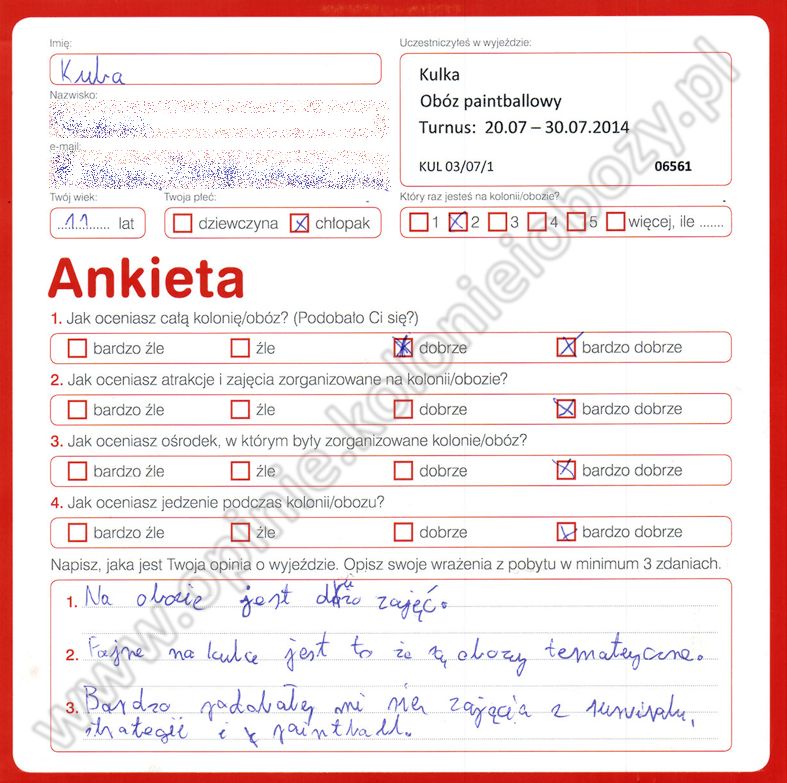 Imię:
Kuba
Nazwisko:
e-mail:
Twój wiek:
11 lat
Twoja płeć:
dziewczyna chłopak
Uczestniczyłeś w wyjeździe:
Kulka
Obóz paintballowy
Turnus: 20.07 – 30.07.2014
KUL 03/07/1 06561
Który raz jesteś na kolonii/obozie?
1 2 3 4 5 więcej, ile .......
Ankieta
1. Jak oceniasz całą kolonię/obóz? (Podobało Ci się?)
bardzo źle źle dobrze bardzo dobrze
2. Jak oceniasz atrakcje i zajęcia zorganizowane na kolonii/obozie?
bardzo źle źle dobrze bardzo dobrze
3. Jak oceniasz ośrodek, w którym były zorganizowane kolonie/obóz?
bardzo źle źle dobrze bardzo dobrze
4. Jak oceniasz jedzenie podczas kolonii/obozu?
bardzo źle źle dobrze bardzo dobrze
Napisz, jaka jest Twoja opinia o wyjeździe. Opisz swoje wrażenia z pobytu w minimum 3 zdaniach.
1. Na obozie jest zajęć.
2. Fajne na kulce jest to że są obozy tematyczne.
3. Bardzo podobały mi się zajęcia z surwiwalu,
strategii i paintball.
www.opinie.kolonieiobozy.pl